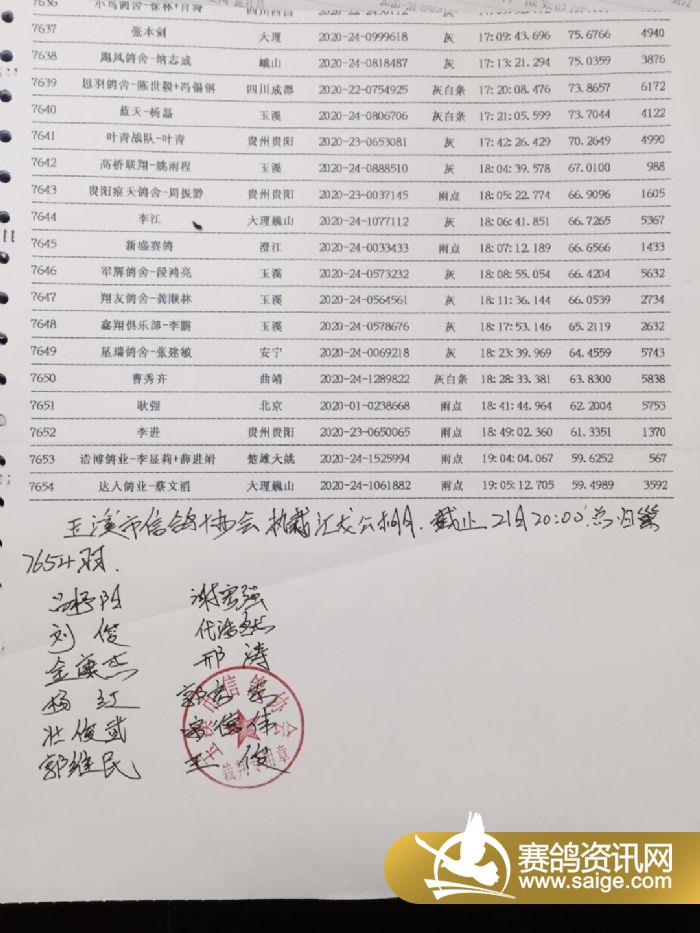 7637 张本剑 大理 2020-24-0999618 灰 17:09:43.696 75.6766 4940
7638 飓风鸽舍-纳志成 峨山 2020-24-0818487 灰 17:13:21.294 75.0359 3876
7639 思羽鸽舍-陈世毅+冯俪钢 四川成都 2020-22-0754925 灰白条 17:20:08.476 73.8657 6172
7640 蓝天-杨磊 玉溪 2020-24-0806706 灰白条 17:21:05.599 73.7044 4122
7641 叶青战队-叶青 贵州贵阳 2020-23-0653081 灰 17:42:26.429 70.2649 4990
7642 高桥联翔-姚雨程 玉溪 2020-24-0888510 灰 18:04:39.578 67.0100 988
7643 贵阳痕天鸽舍-周振黔 贵州贵阳 2020-23-0037145 雨点 18:05:22.774 66.9096 1605
7644 李江 大理巍山 2020-24-1077112 灰 18:06:41.851 66.7265 5367
7645 新盛赛鸽 澄江 2020-24-0033433 雨点 18:07:12.189 66.6566 1433
7646 军辉鸽舍-段鸿亮 玉溪 2020-24-0573232 灰 18:08:55.054 66.4204 5632
7647 翔友鸽舍-龚顺林 玉溪 2020-24-0564561 灰 18:11:36.144 66.0539 2734
7648 鑫翔俱乐部-李鹏 玉溪 2020-24-0578676 灰 18:17:53.146 65.2119 2632
7649 星瑞鸽舍-张建敏 安宁 2020-24-0069218 灰 18:23:39.969 64.4559 5743
7650 曹秀齐 曲靖 2020-24-1289822 灰白条 18:28:33.381 63.8300 5838
7651 耿强 北京 2020-01-0238668 雨点 18:41:44.964 62.2004 5753
7652 李进 贵州贵阳 2020-23-0650065 雨点 18:49:02.360 61.3351 1370
7653 浩博鸽业-李显莉+薛进娟 楚雄大姚 2020-24-1525994 雨点 19:04:04.067 59.6252 567
7654 达人鸽业-蔡文滔 大理巍山 2020-24-1061882 雨点 19:05:12.705 59.4989 3592
玉溪市信鸽协会 截止21日20:00总归巢
7654羽.
刘俊
杨红 邢涛
郭维民 王俊
玉溪市信鸽协会
裁判专用章
赛鸽资讯网
www.saige.com